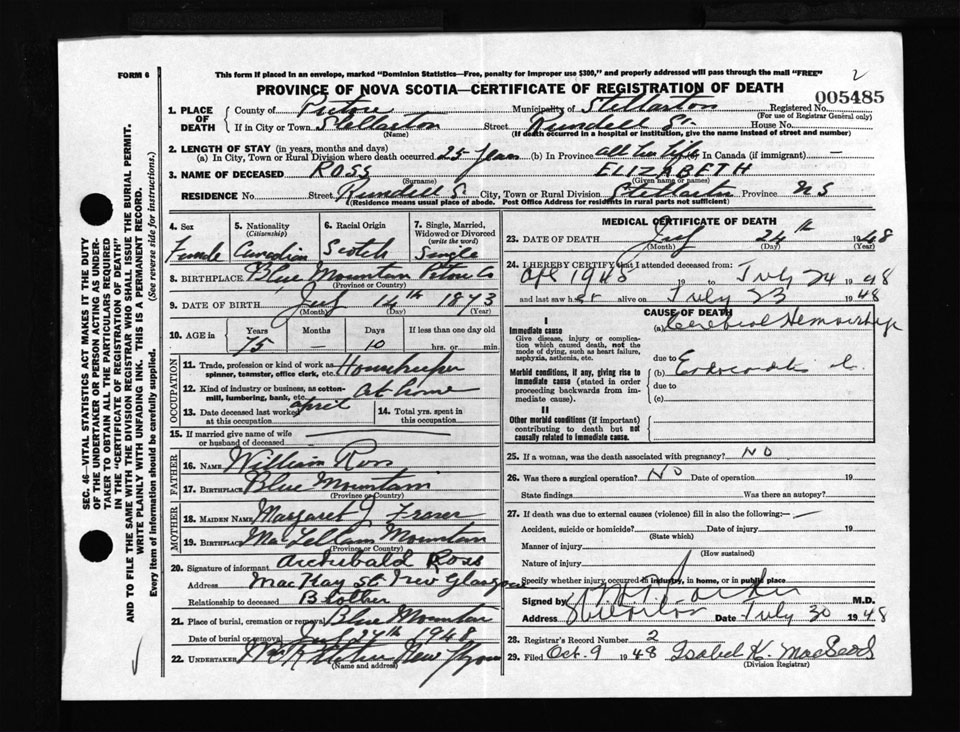 FORM 6
This form if placed in an envelope, marked "Dominion Statistics—Free, penalty for improper use $300," and properly addressed will pass through the mail "FREE"
2
PROVINCE OF NOVA SCOTIA—CERTIFICATE OF REGISTRATION OF DEATH
005485
1. PLACE OF DEATH
County of Pictou Municipality of Stellarton Registered No.
(For use of Registrar General only)
If in City or Town Stellarton Street Rundell St. House No.
(Name) (If death occurred in a hospital or institution, give the name instead of street and number)
2. LENGTH OF STAY (in years, months and days)
(a) In City, Town or Rural Division where death occurred 25 years (b) In Province all her life (c) In Canada (if immigrant) —
3. NAME OF DECEASED ROSS ELIZABETH
(Surname) (Given name or names)
RESIDENCE No. Street Rundell S. City, Town or Rural Division Stellarton Province N S
(Residence means usual place of abode. Post Office Address for residents in rural parts not sufficient)
4. Sex
Female
5. Nationality
(Citizenship)
Canadian
6. Racial Origin
Scotch
7. Single, Married, Widowed or Divorced
(write the word)
Single
8. BIRTHPLACE Blue Mountain Pictou Co
(Province or Country)
9. DATE OF BIRTH July 14th 1873
(Month) (Day) (Year)
10. AGE in Years Months Days If less than one day old
75 — 10 hrs. or min.
OCCUPATION
11. Trade, profession or kind of work as spinner, teamster, office clerk, etc. Housekeeper
12. Kind of industry or business, as cotton-mill, lumbering, bank, etc. At home
13. Date deceased last worked at this occupation April
14. Total yrs. spent in this occupation
15. If married give name of wife or husband of deceased
FATHER
16. NAME William Ross
17. BIRTHPLACE Blue Mountain
(Province or Country)
MOTHER
18. MAIDEN NAME Margaret J Fraser
19. BIRTHPLACE MacLellans Mountain
(Province or Country)
20. Signature of informant Archibald Ross
Address MacKay St. New Glasgow
Relationship to deceased Brother
21. Place of burial, cremation or removal Blue Mountain
Date of burial or removal July 27th 1948
22. UNDERTAKER New Glasgow
(Name and address)
MEDICAL CERTIFICATE OF DEATH
23. DATE OF DEATH July 24th 1948
(Month) (Day) (Year)
24. I HEREBY CERTIFY that I attended deceased from:
Apl 1945 19 to July 24 1948
and last saw her alive on July 23 1948
CAUSE OF DEATH
I
Immediate cause
Give disease, injury or complication which caused death, not the mode of dying, such as heart failure, asphyxia, asthenia, etc.
(a) Cerebral Hemorrhage
due to
Morbid conditions, if any, giving rise to immediate cause (stated in order proceeding backwards from immediate cause)
(b) Endocarditis
due to
(c)
II
Other morbid conditions (if important) contributing to death but not causally related to immediate cause.
25. If a woman, was the death associated with pregnancy? NO
26. Was there a surgical operation? NO Date of operation 19
State findings Was there an autopsy?
27. If death was due to external causes (violence) fill in also the following:— —
Accident, suicide or homicide? Date of injury 19
(State which)
Manner of injury
(How sustained)
Nature of injury
Specify whether injury occurred in industry, in home, or in public place
Signed by M.D.
Address Stellarton Date July 30 1948
28. Registrar's Record Number 2
29. Filed Oct. 9 1948 Isabel K. MacLeod
(Division Registrar)
SEC. 46—VITAL STATISTICS ACT MAKES IT THE DUTY
OF THE UNDERTAKER OR PERSON ACTING AS UNDER-
TAKER TO OBTAIN ALL THE PARTICULARS REQUIRED
IN THE "CERTIFICATE OF REGISTRATION OF DEATH"
AND TO FILE THE SAME WITH THE DIVISION REGISTRAR WHO SHALL ISSUE THE BURIAL PERMIT.
WRITE PLAINLY WITH UNFADING INK. THIS IS A PERMANENT RECORD.
Every item of information should be carefully supplied. (See reverse side for instructions.)